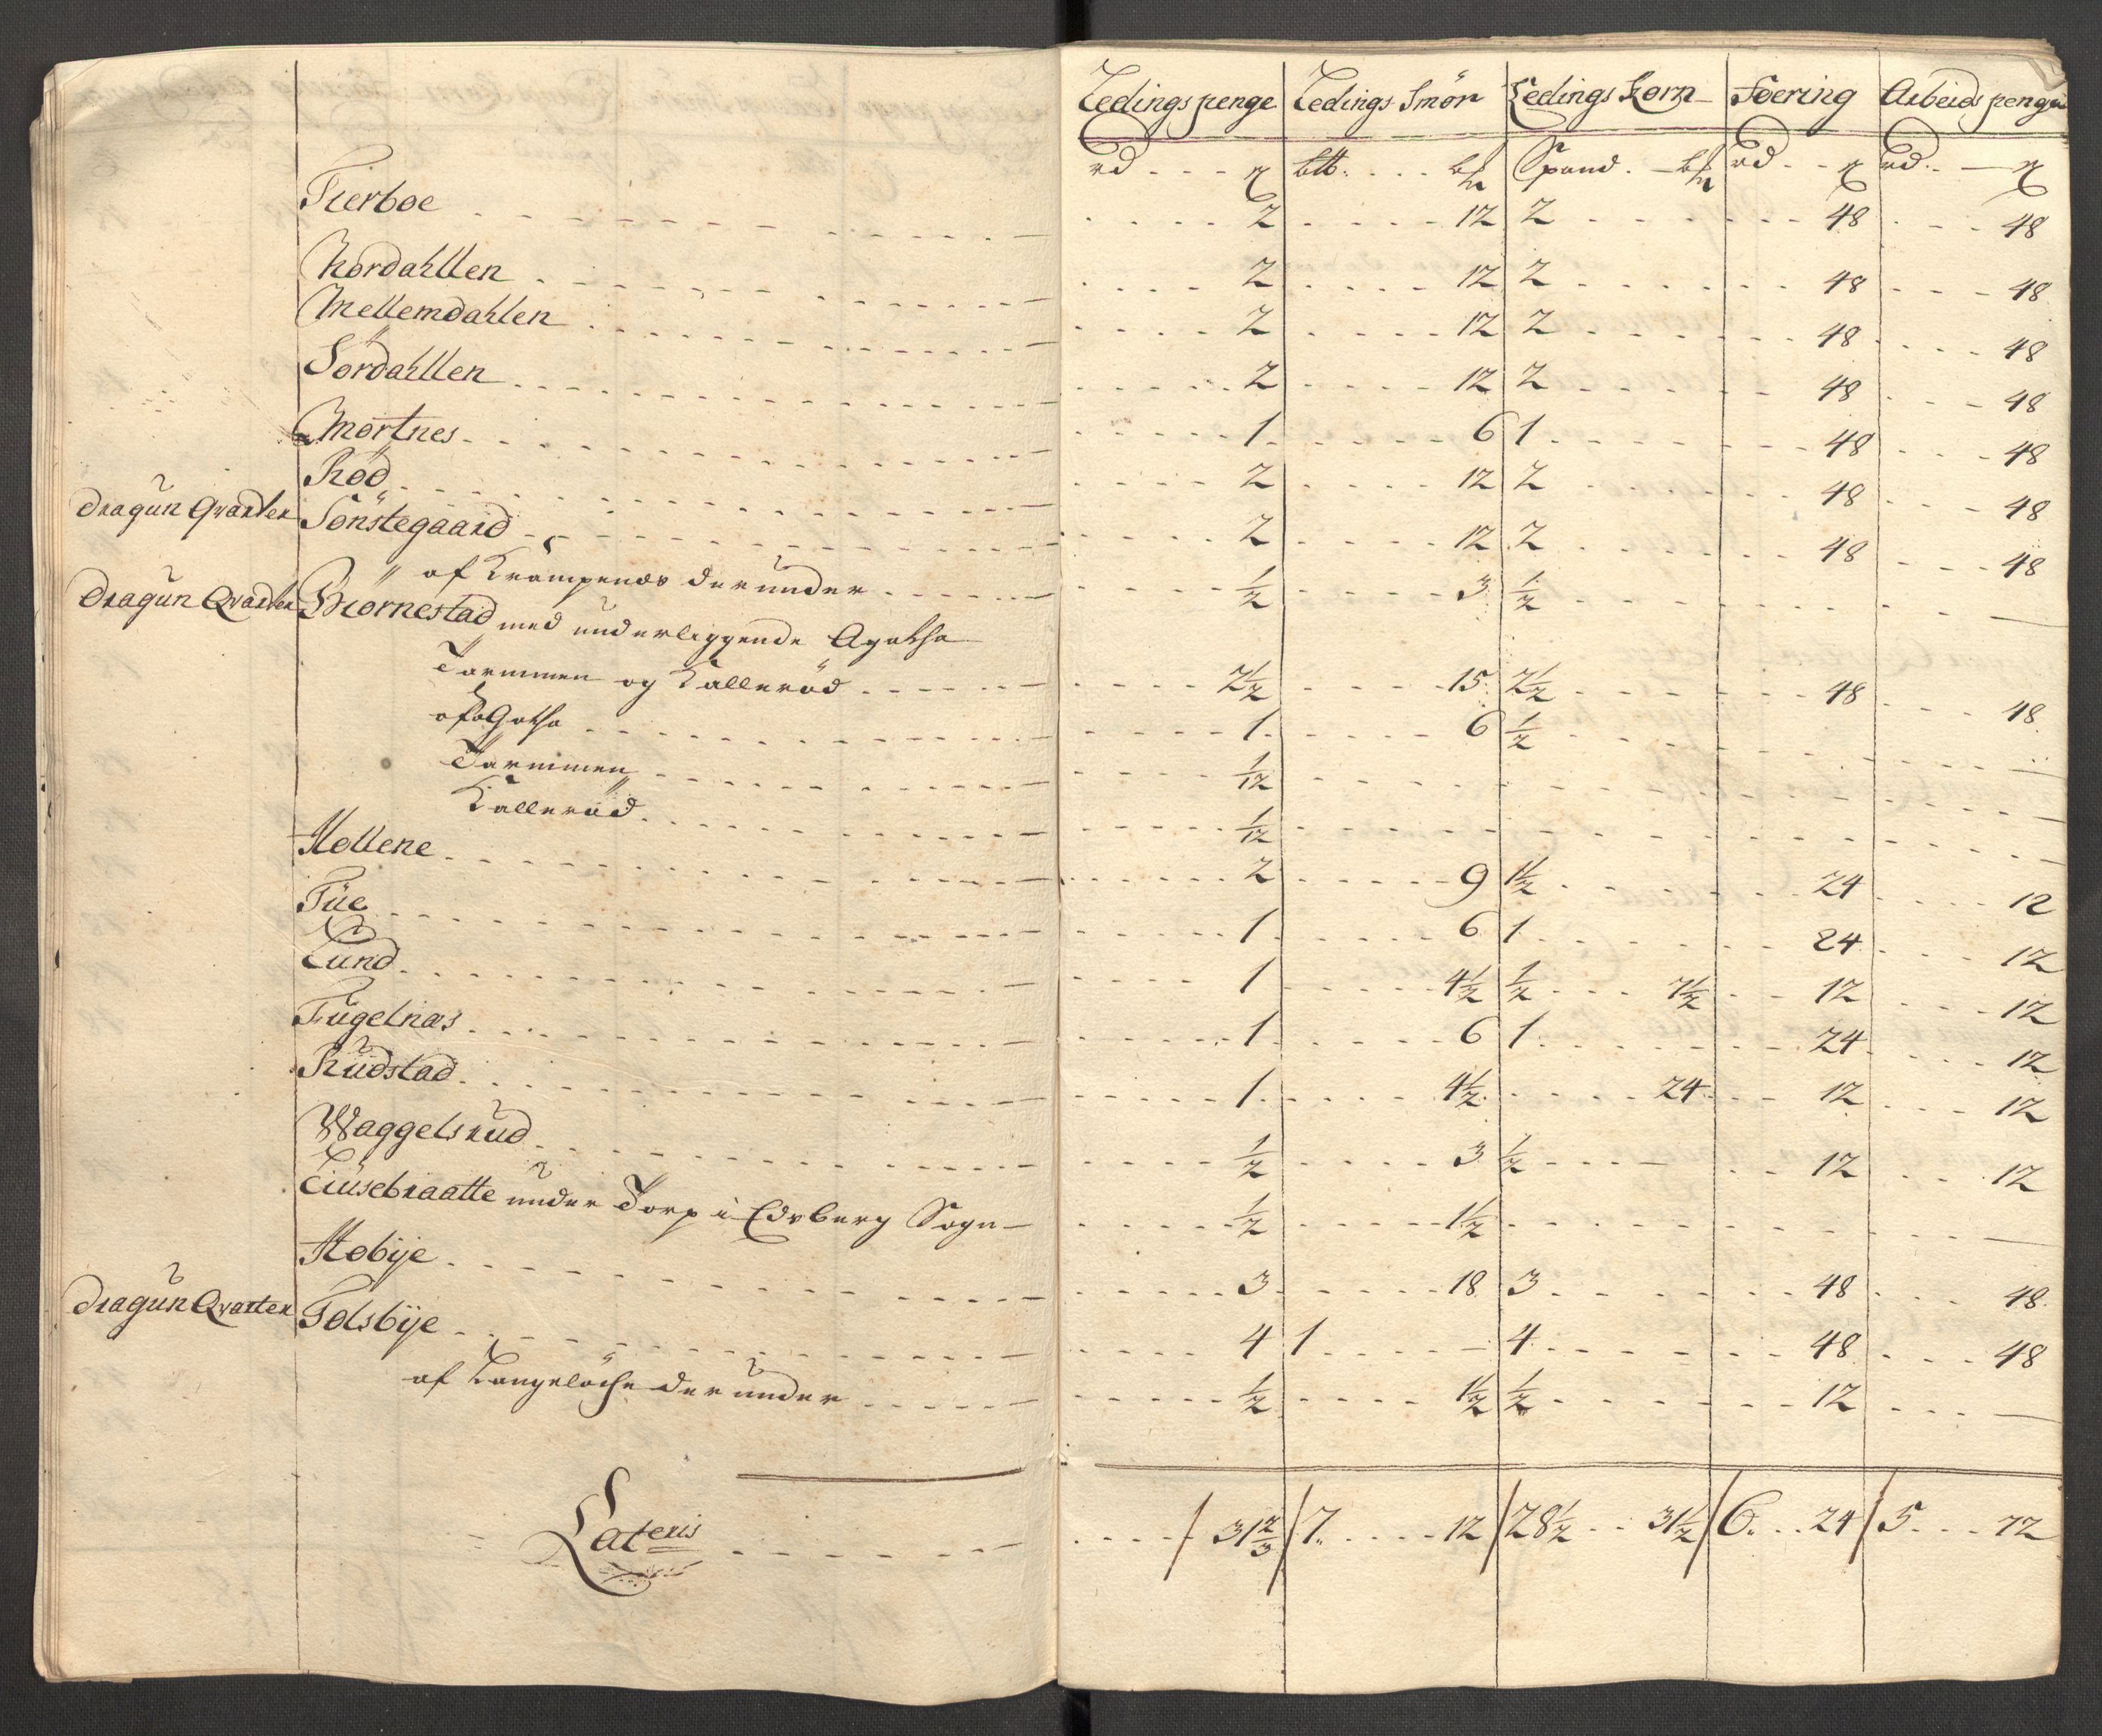 Ledings penge Ledings Smør Ledings Korn Foering Arbeids penge
rd - - - ß btt. - - - bſn Spand. - bſn rd - - ß rd. - ß
Fierboe - - - 2 - - - 12 2 - - - 48 - - - 48
Nordahllen - - - 2 - - - 12 2 - - - 48 - - - 48
Mellemdahlen - - - 2 - - - 12 2 - - - 48 - - - 48
Sördahllen - - - 2 - - - 12 2 - - - 48 - - - 48
Mortnes - - - 1 - - - 6 1 - - - 48 - - - 48
Röd - - - 2 - - - 12 2 - - - 48 - - - 48
Dragun Qvarter Sönstegaard - - - 2 - - - 12 2 - - - 48 - - - 48
" af Krampenæs derunder - - - 1/2 - - - 3 1/2 - - -
Dragun Qvarter Biornestad med underliggende
Tormmen og Kalleröd - - - 2 1/2 - - - 15 2 1/2 - - - 48 - - - 48
- - - 1 - - - 6 1/2 - - -
Tormmen - - - 1/12 - - -
Kalleröd - - - 1/12 - - -
Hollene - - - 2 - - - 9 1 1/2 - - - 24 - - - 12
Tüe - - - 1 - - - 6 1 - - - 24 - - - 12
Lund - - - 1 - - - 4 1/2 1/2 - - - 7 1/2 - - 12 - - - 12
Fugelnæs - - - 1 - - - 6 1 - - - 24 - - - 12
Rudstad - - - 1 - - - 4 1/2 - - - 24 - - 12 - - - 12
Waggelsrud - - - 1/2 - - - 3 1/2 - - - 12 - - - 12
Tiusebraatte under Torp i Edsberg Sogn - - - 1/2 - - - 1 1/2 - - -
Hobÿe - - - 3 - - - 18 3 - - - 48 - - - 48
Dragun Qvarter Folsbÿe - - - 4 1 - - - 4 - - - 48 - - - 48
af derunder - - - 1/2 - - - 1 1/2 1/2 - - - 12 - - -
Lateris - - - / 31 2/3 / 7. - - - 12 / 28 1/2 - - 31 1/2 / 6. - - 24 / 5 - - - 72